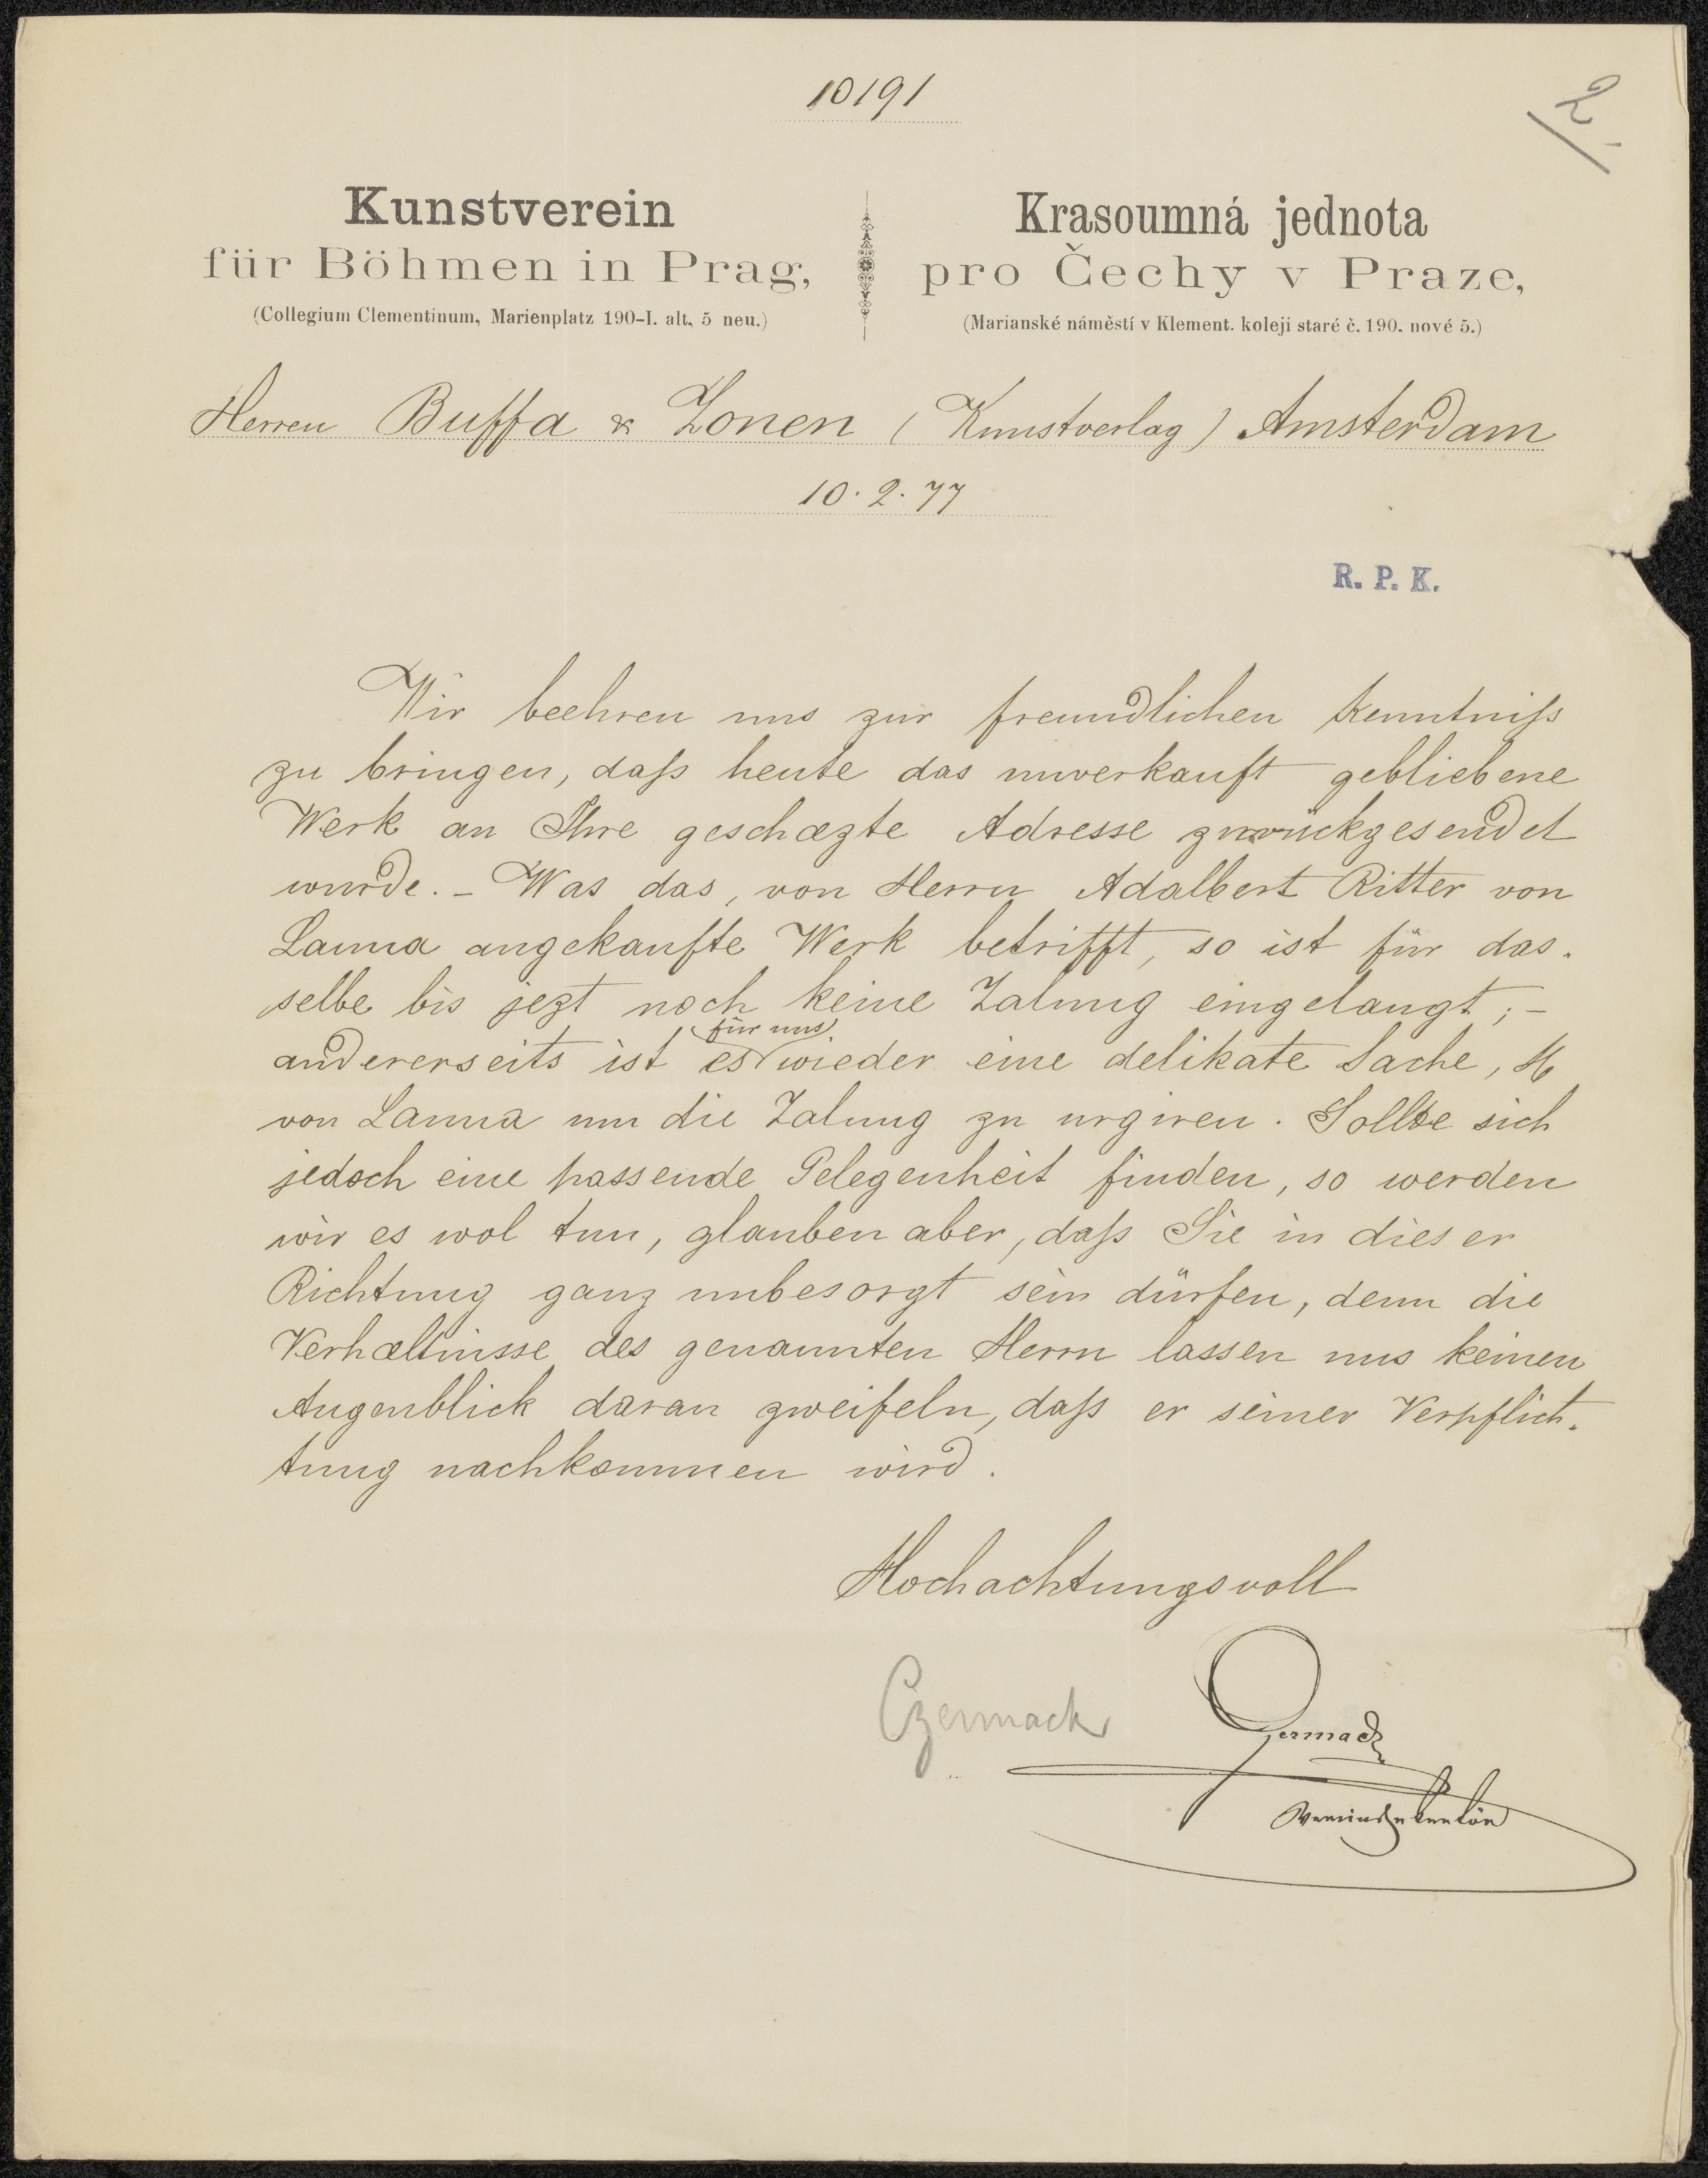 10191
2.
Kunstverein
für Böhmen in Prag,
(Collegium Clementinum, Marienplatz 190-I. alt, 5 neu.)
Krasoumná jednota
pro Čechy v Praze,
(Marianské náměstí v Klement. koleji staré č. 190. nové 5.)
Herren Buffa & Zonen (Kunstverlag) Amsterdam
10. 2. 77
R. P. K.
Wir beehren uns zur freundlichen Kenntniß
zu bringen, daß heute das unverkauft gebliebene
Werk an Ihre geschæzte Adresse zurückgesendet
wurde. – Was das, von Herrn Adalbert Ritter von
Lanna angekaufte Werk betrifft, so ist für das-
selbe bis jezt noch keine Zalung eingelangt; –
für uns
andererseits ist es wieder eine delikate Sache, H
von Lanna um die Zalung zu urgiren. Sollte sich
jedoch eine passende Gelegenheit finden, so werden
wir es wol tun, glauben aber, daß Sie in dieser
Richtung ganz unbesorgt sein dürfen, denn die
Verhæltnisse des genannten Herrn lassen uns keinen
Augenblick daran zweifeln, daß er seiner Verpflich-
tung nachkommen wird.
Hochachtungsvoll
Czermack
Czermack